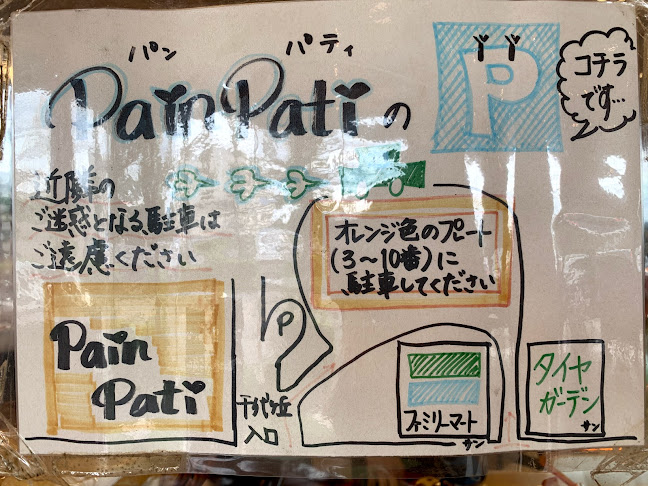 パン パティ
Pain Patiの P
コチラ
です…
近隣の
ご迷惑となる駐車は
ご遠慮ください
オレンジ色のプレート
(3〜10番)に
駐車してください
P
Pain
Pati
入口
ファミリーマート
サン
タイヤ
ガーデン
サン